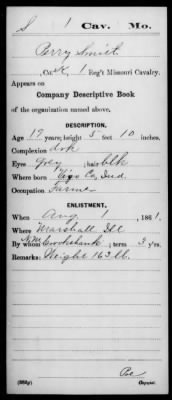 S 1 Cav. Mo.
Perry Smith
, Co. K, 1 Reg't Missouri Cavalry.
Appears on
Company Descriptive Book
of the organization named above.
DESCRIPTION.
Age 19 years; height 5 feet 10 inches.
Complexion drk
Eyes grey ; hair blk
Where born Vigo Co, Ind.
Occupation Farmer
ENLISTMENT.
When Aug 1 , 1861.
Where Marshall Ill
By whom N.M. Crookshank ; term 3 y'rs.
Remarks: Weight 163 lb.
Copyist.